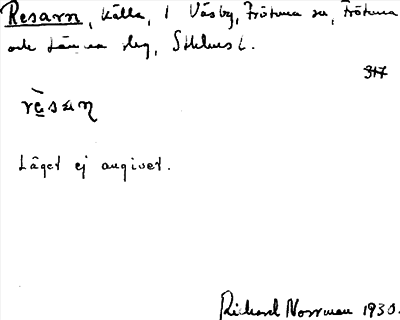 Resarn, källa, i Väsby, Frötuna sn, Frötuna
och Länna slg, Sthlms l.
317
Läget ej angivet.
Richard Norrman 1930.